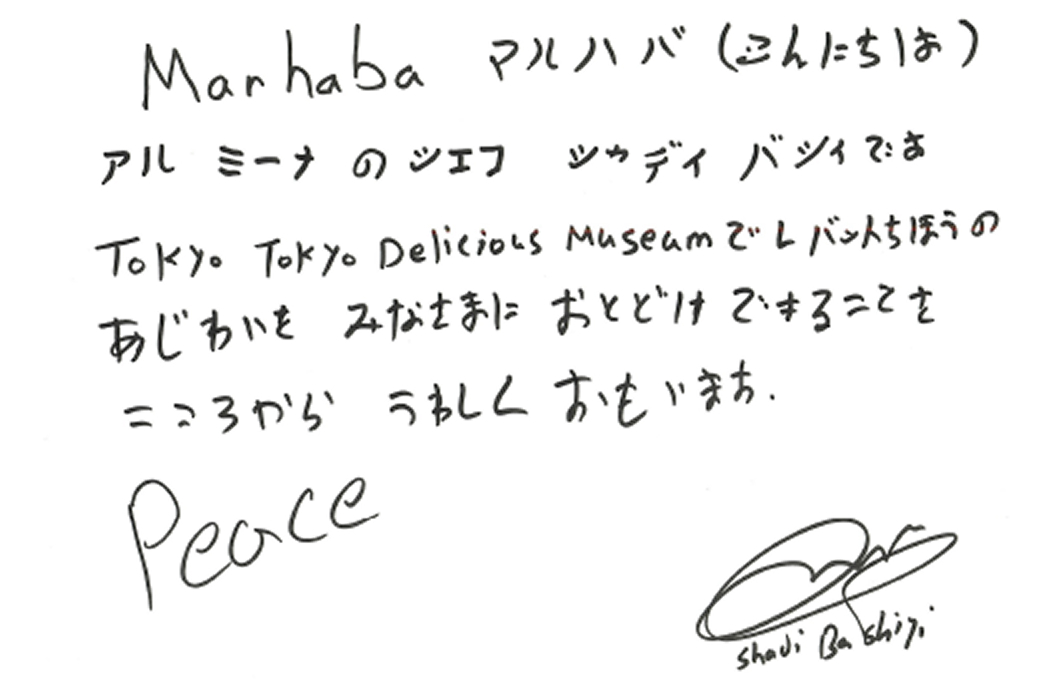 Marhaba マルハバ (こんにちは)
アル ミーナ の シェフ シャディ バシイ です
Tokyo Tokyo Delicious Museam で レバントちほうの
あじわいを みなさまに おとどけ できることを
こころから うれしく おもいます.
Peace
Shadi Bashiyi